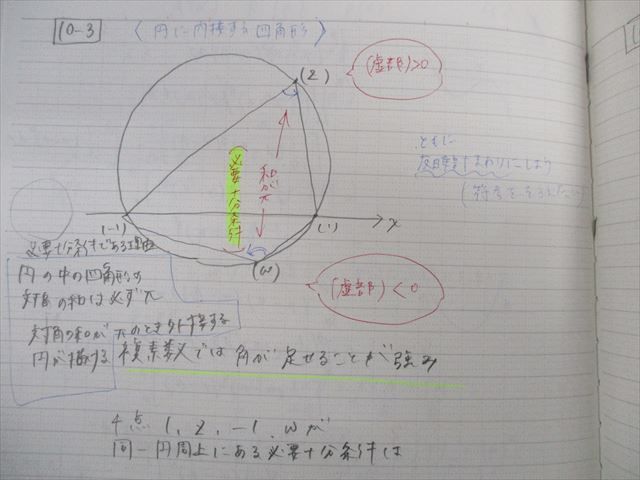 10-3 〈円に内接する四角形〉
(z)
(虚部)>0
ともに
反時計まわりにしよう
(符号を
和がπ
必要十分条件
(-1)
(1)
x
(w)
必要十分条件である理由
円の中の四角形の
対角の和は必ずπ
対角の和がπのとき外接する
円が描ける
(虚部)<0
複素数では角が足せることが強み
4点 1, z, -1, wが
同一円周上にある必要十分条件は